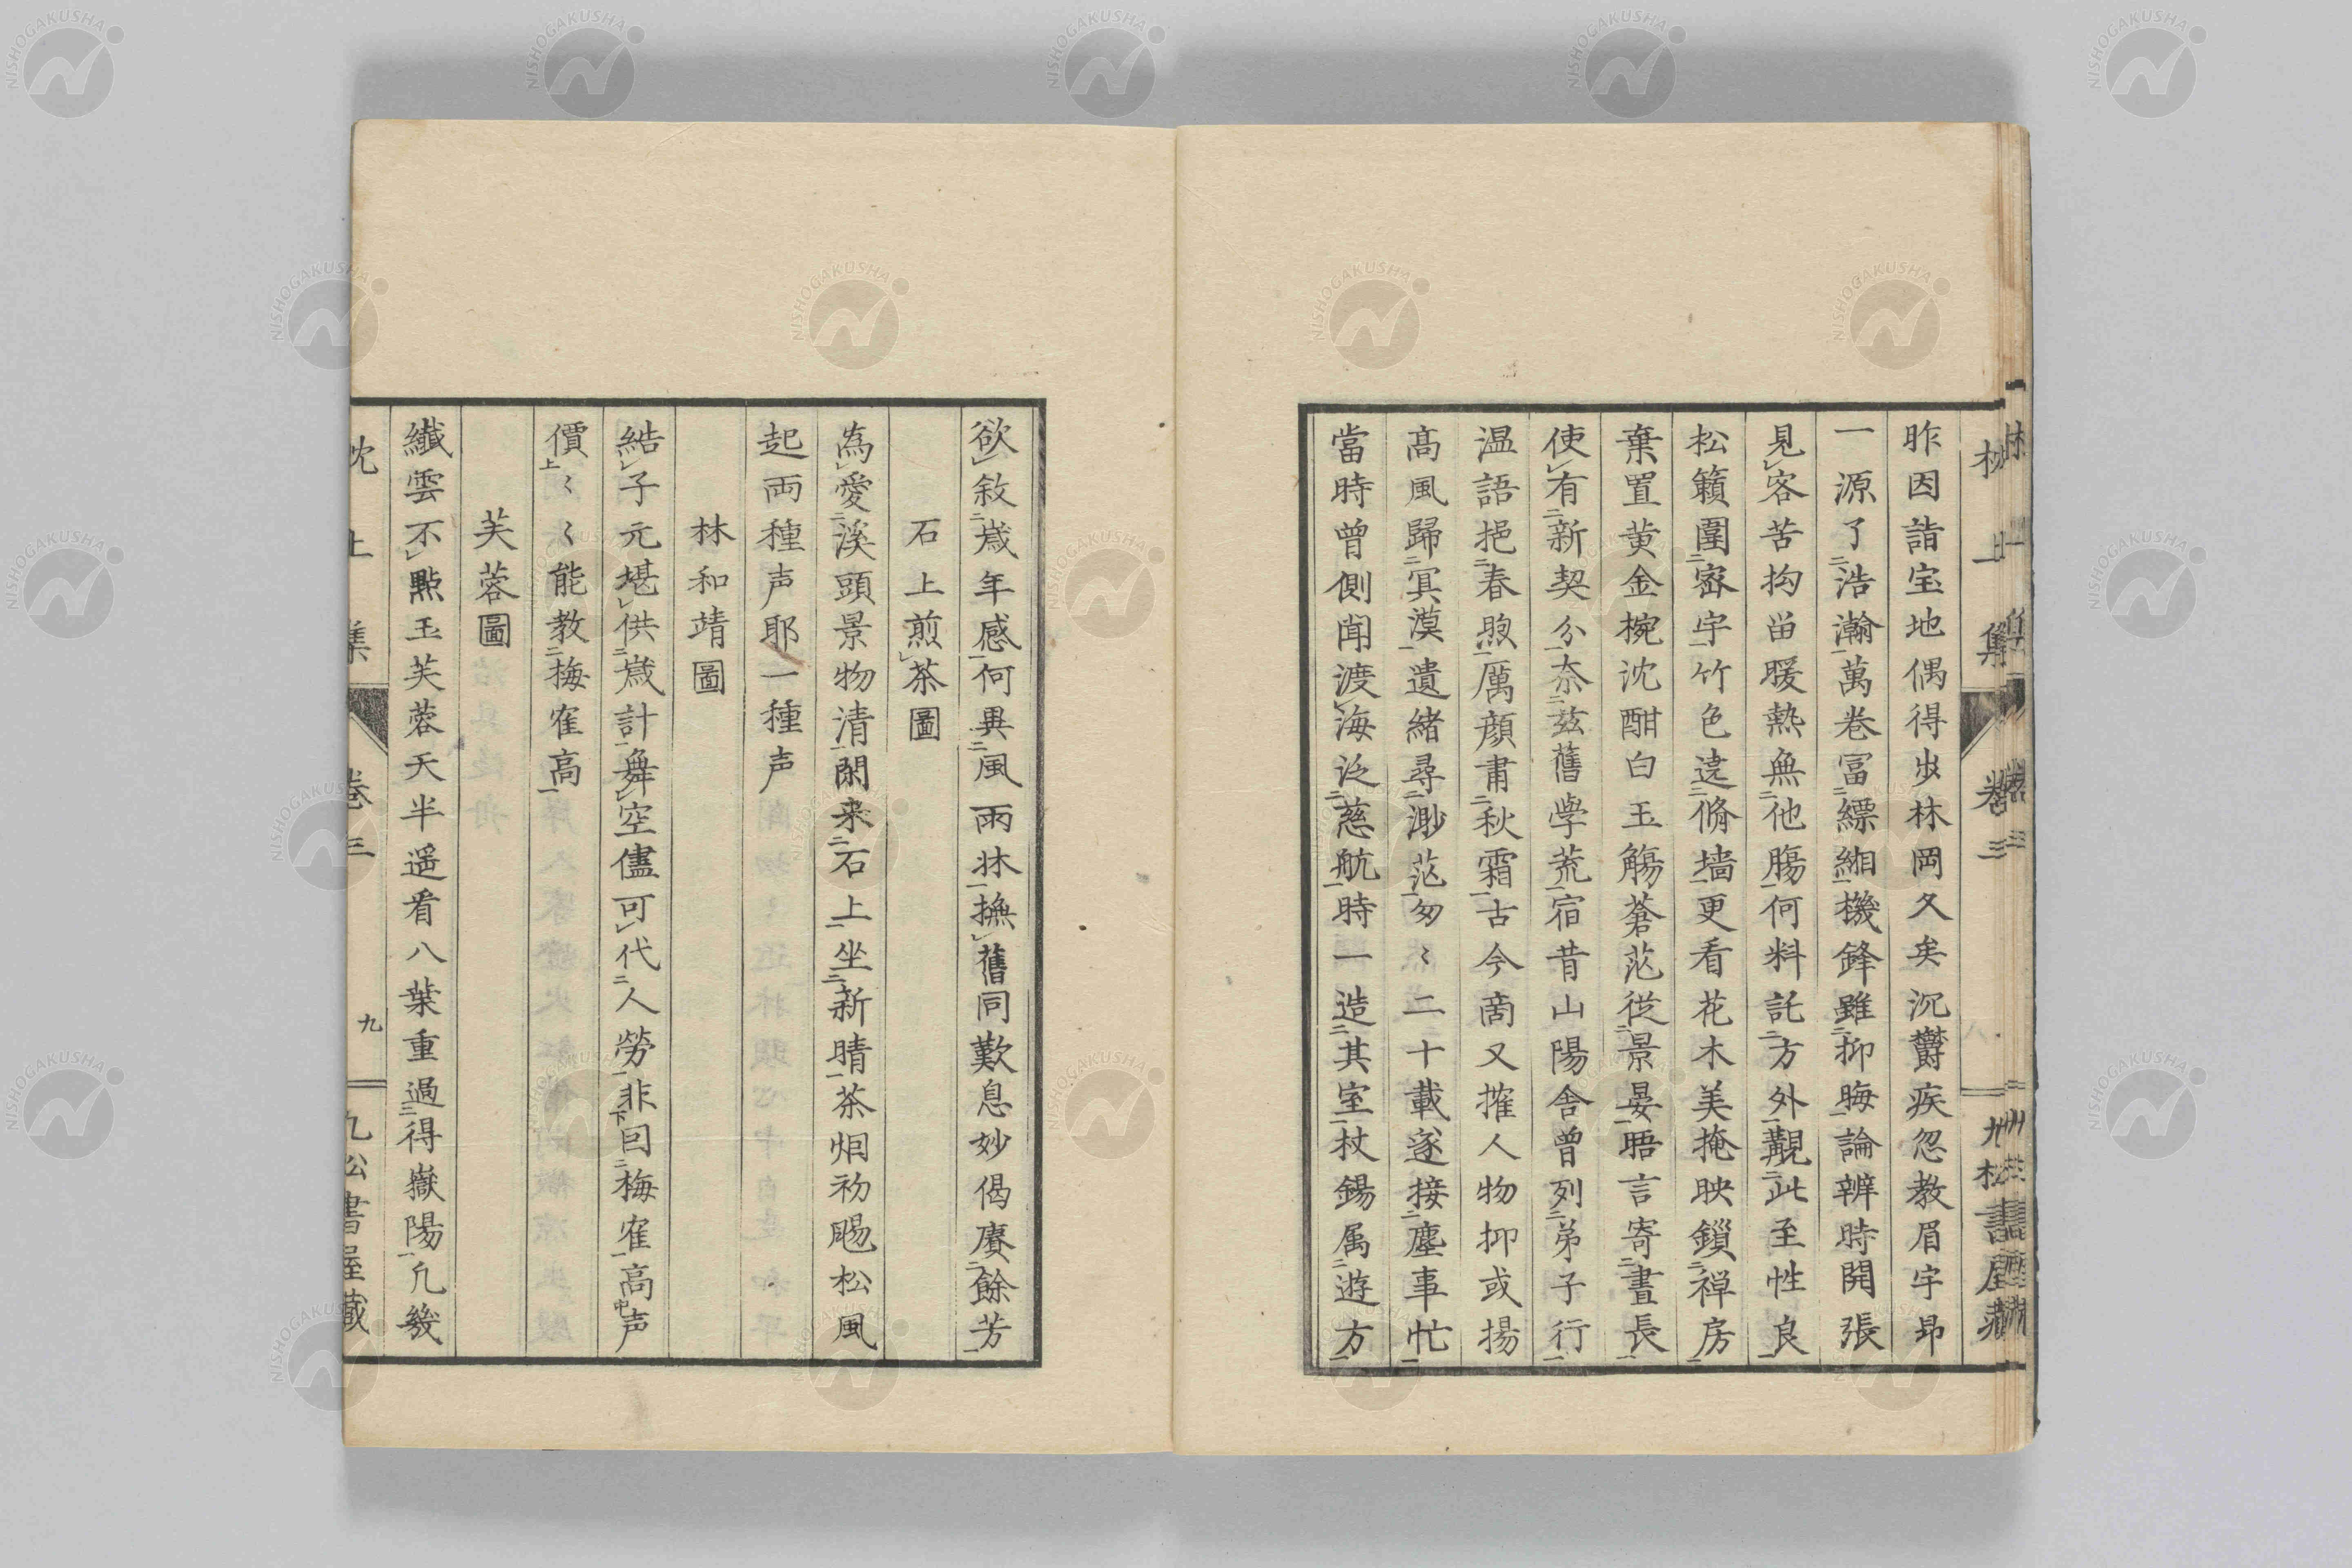 昨因詣宝地偶得步林岡久矣沉欝疾忽教眉宇昻
一源了浩瀚萬卷冨縹緗機鋒雖抑晦論辨時開張
見客苦拘畄暖熱無他膓何料託方外覯此至性良
松籟圍宻宇竹色遶脩墙更看花木美掩映鎖禅房
棄置黄金椀沈酣白玉觴蒼茫從景晏晤言寄晝長
使有新契分柰茲舊學荒宿昔山陽舎曽列弟子行
温語挹春煦厲顔肅秋霜古今啇又搉人物抑或揚
髙風歸冥漠遺緒尋渺茫匆〻二十載遂接塵事忙
當時曽側聞渡海泛慈航時一造其室杖錫属遊方
欲叙歳年感何異風雨牀撫舊同歎息妙偈賡餘芳
石上煎茶圖
為愛溪頭景物清閑来石上坐新晴茶烟初颺松風
起両種声耶一種声
林和靖圖
結子元堪供歳計舞空儘可代人勞非因梅隺高声
價〻〻能教梅隺高
芙蓉圖
纎雲不㸃玉芙蓉天半遥看八葉重過得嶽陽凢幾
枕上集 卷三 九 九松書屋藏